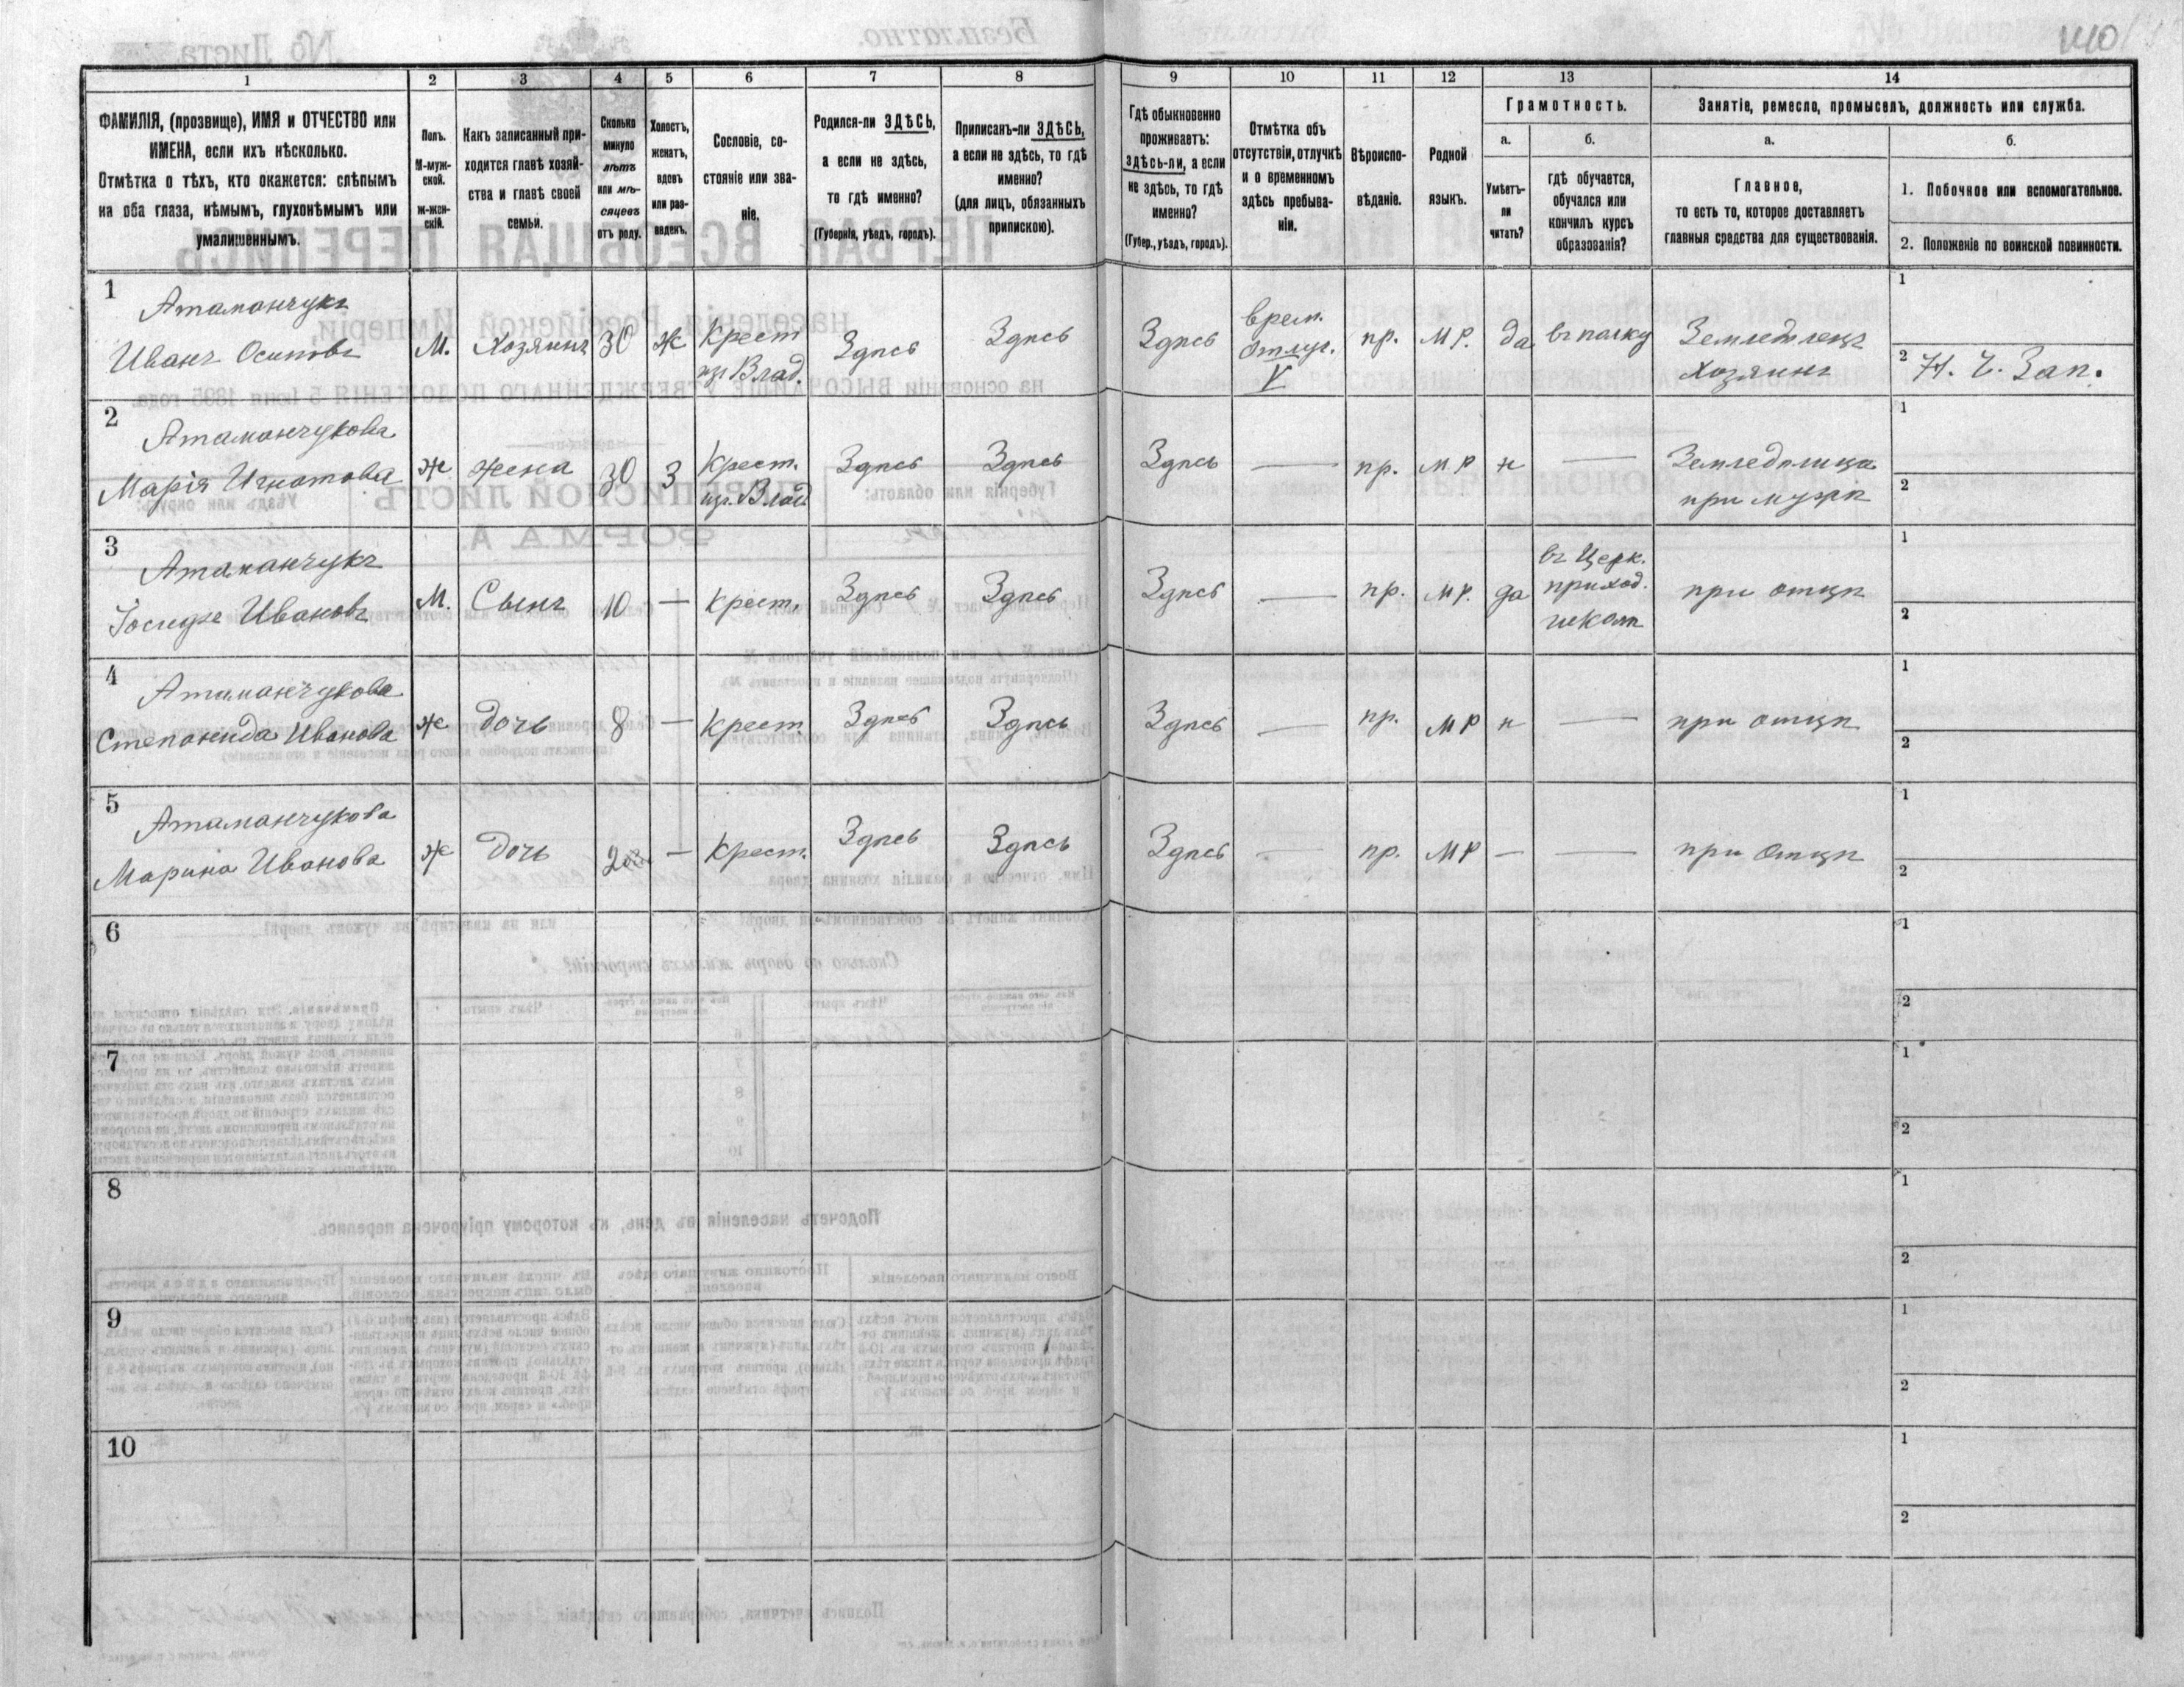 140
1
2
3
4
5
6
7
8
9
10
11
12
13
14
ФАМИЛІЯ, (прозвище), ИМЯ и ОТЧЕСТВО или
ИМЕНА, если ихъ нѣсколько.
Отмѣтка о тѣхъ, кто окажется: слѣпымъ
на оба глаза, нѣмымъ, глухонѣмымъ или
умалишеннымъ.
Полъ.
М-муж-
ской.
ж-жен-
скій.
Какъ записанный при-
ходится главѣ хозяй-
ства и главѣ своей
семьи.
Сколько
минуло
лѣтъ
или мѣ-
сяцевъ
отъ роду.
Холостъ,
женатъ,
вдовъ
или раз-
веденъ.
Сословіе, со-
стояніе или зва-
ніе.
Родился-ли ЗДѢСЬ,
а если не здѣсь,
то гдѣ именно?
(Губернія, уѣздъ, городъ).
Приписанъ-ли ЗДѢСЬ,
а если не здѣсь, то гдѣ
именно?
(для лицъ, обязанныхъ
припискою).
Гдѣ обыкновенно
проживаетъ:
здѣсь-ли, а если
не здѣсь, то гдѣ
именно?
(Губер., уѣздъ, городъ).
Отмѣтка объ
отсутствіи, отлучкѣ
и о временномъ
здѣсь пребыва-
ніи.
Вѣроиспо-
вѣданіе.
Родной
языкъ.
Грамотность.
а.
Умѣетъ-
ли
читать?
б.
гдѣ обучается,
обучался или
кончилъ курсъ
образованія?
Занятіе, ремесло, промыселъ, должность или служба.
а.
Главное,
то есть то, которое доставляетъ
главныя средства для существованія.
б.
1. Побочное или вспомогательное.
2. Положеніе по воинской повинности.
1
Атаманчукъ
Иванъ Осиповъ
М.
Хозяинъ
30
Ж
Крест
из Влад.
Здѣсь
Здѣсь
Здѣсь
врем.
отлуч.
V
пр.
М Р.
да
въ полку
Земледѣлецъ
хозяинъ
1
2
Н. Ч. Зап.
2
Атаманчукова
Марія Игнатова
Ж
Жена
30
З
Крест.
из. Влад
Здѣсь
Здѣсь
Здѣсь
—
пр.
М Р
н
—
Земледѣлица
при мужѣ
1
2
3
Атаманчукъ
Іосифъ Ивановъ
М.
Сынъ
10
—
Крест.
Здѣсь
Здѣсь
Здѣсь
—
пр.
М Р.
да
въ Церк.
приход.
школѣ
при отцѣ
1
2
4
Атаманчукова
Степанида Иванова
Ж
дочь
8
—
Крест.
Здѣсь
Здѣсь
Здѣсь
—
пр.
М Р
н
—
при отцѣ
1
2
5
Атаманчукова
Марина Иванова
Ж
дочь
2
—
Крест.
Здѣсь
Здѣсь
Здѣсь
—
пр.
М Р
—
—
при отцѣ
1
2
6
1
2
7
1
2
8
1
2
9
1
2
10
1
2